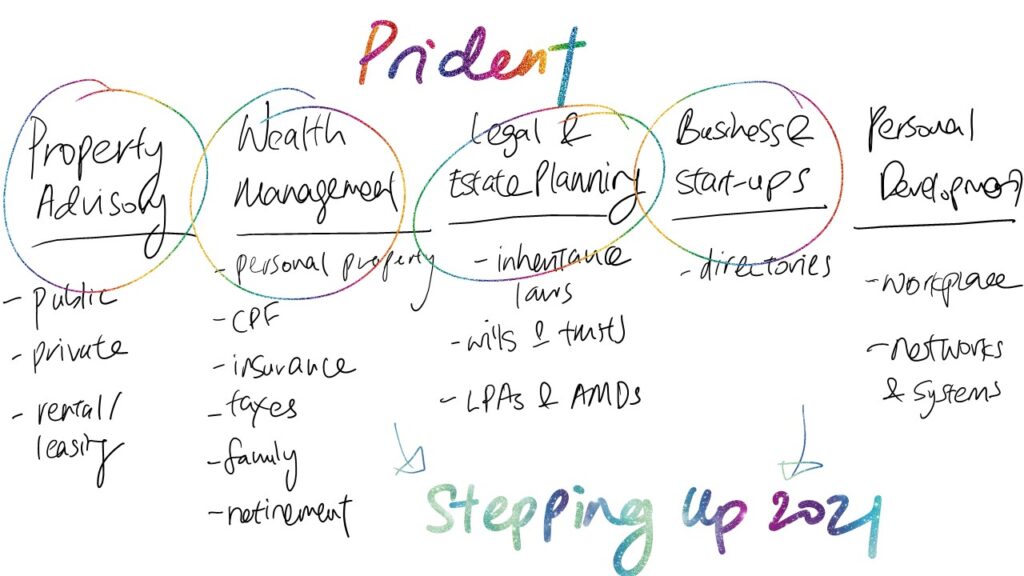 Prident
Property
Advisory
- public
- private
- rental/
leasing
Wealth
Management
- personal property
- CPF
- insurance
- taxes
- family
- retirement
Legal &
Estate Planning
- inheritance
laws
- wills & trusts
- LPAs & AMDs
Business &
start-ups
- directories
Personal
Development
- workplace
- networks
& systems
Stepping Up 2021